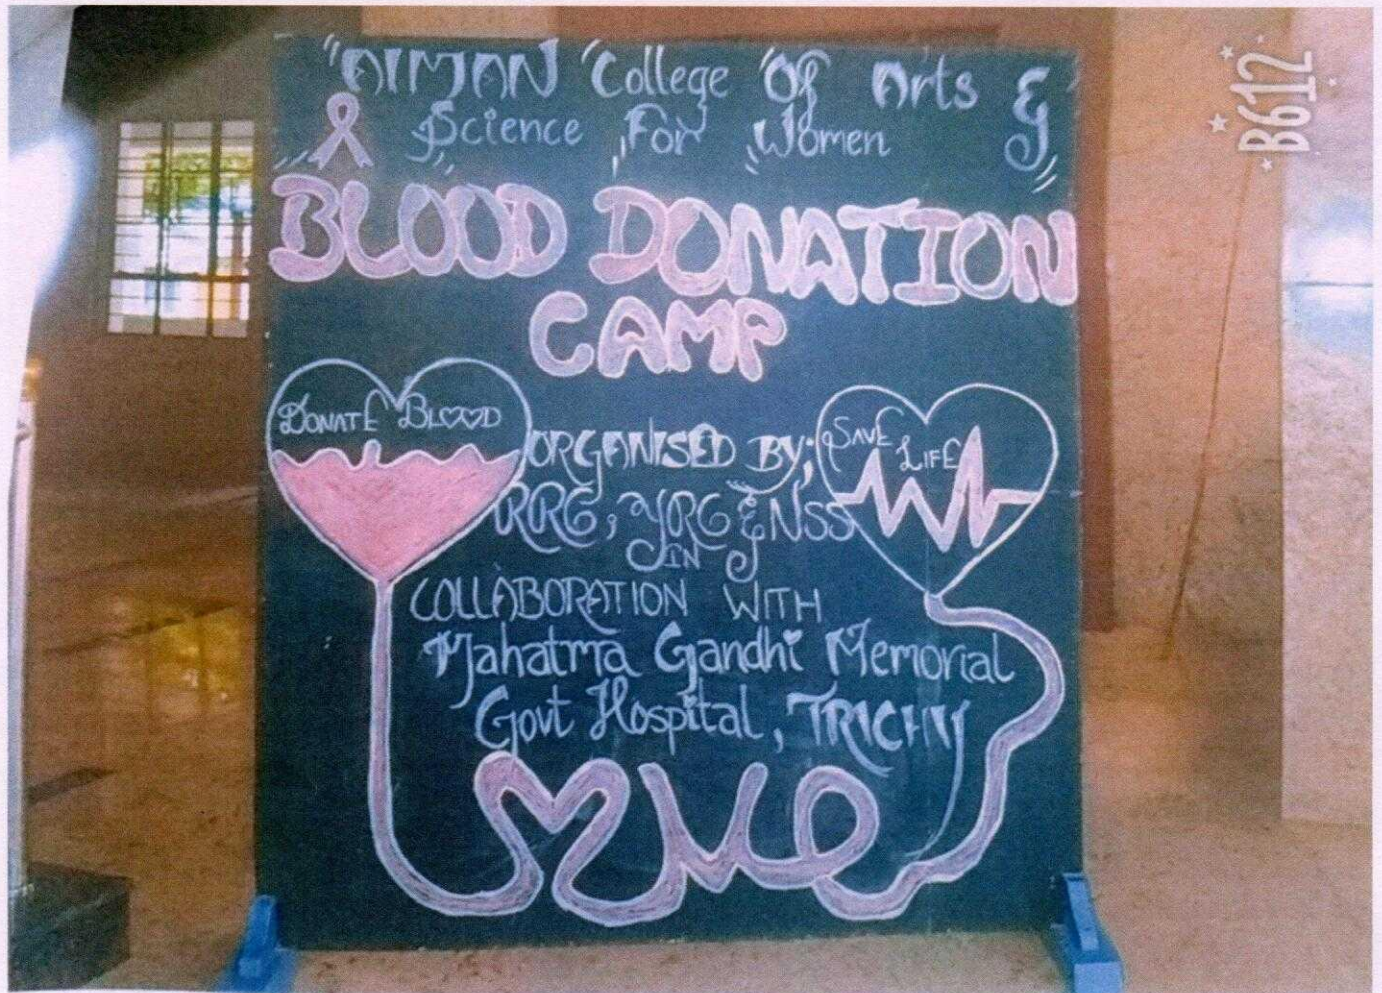 "AIMAN "College "Of Arts &
Science For Women
BLOOD DONATION
CAMP
DONATE BLOOD
SAVE LIFE
ORGANISED BY;
RRC, YRC & NSS
IN
COLLABORATION WITH
Mahatma Gandhi Memorial
Govt Hospital, TRICHY
B612